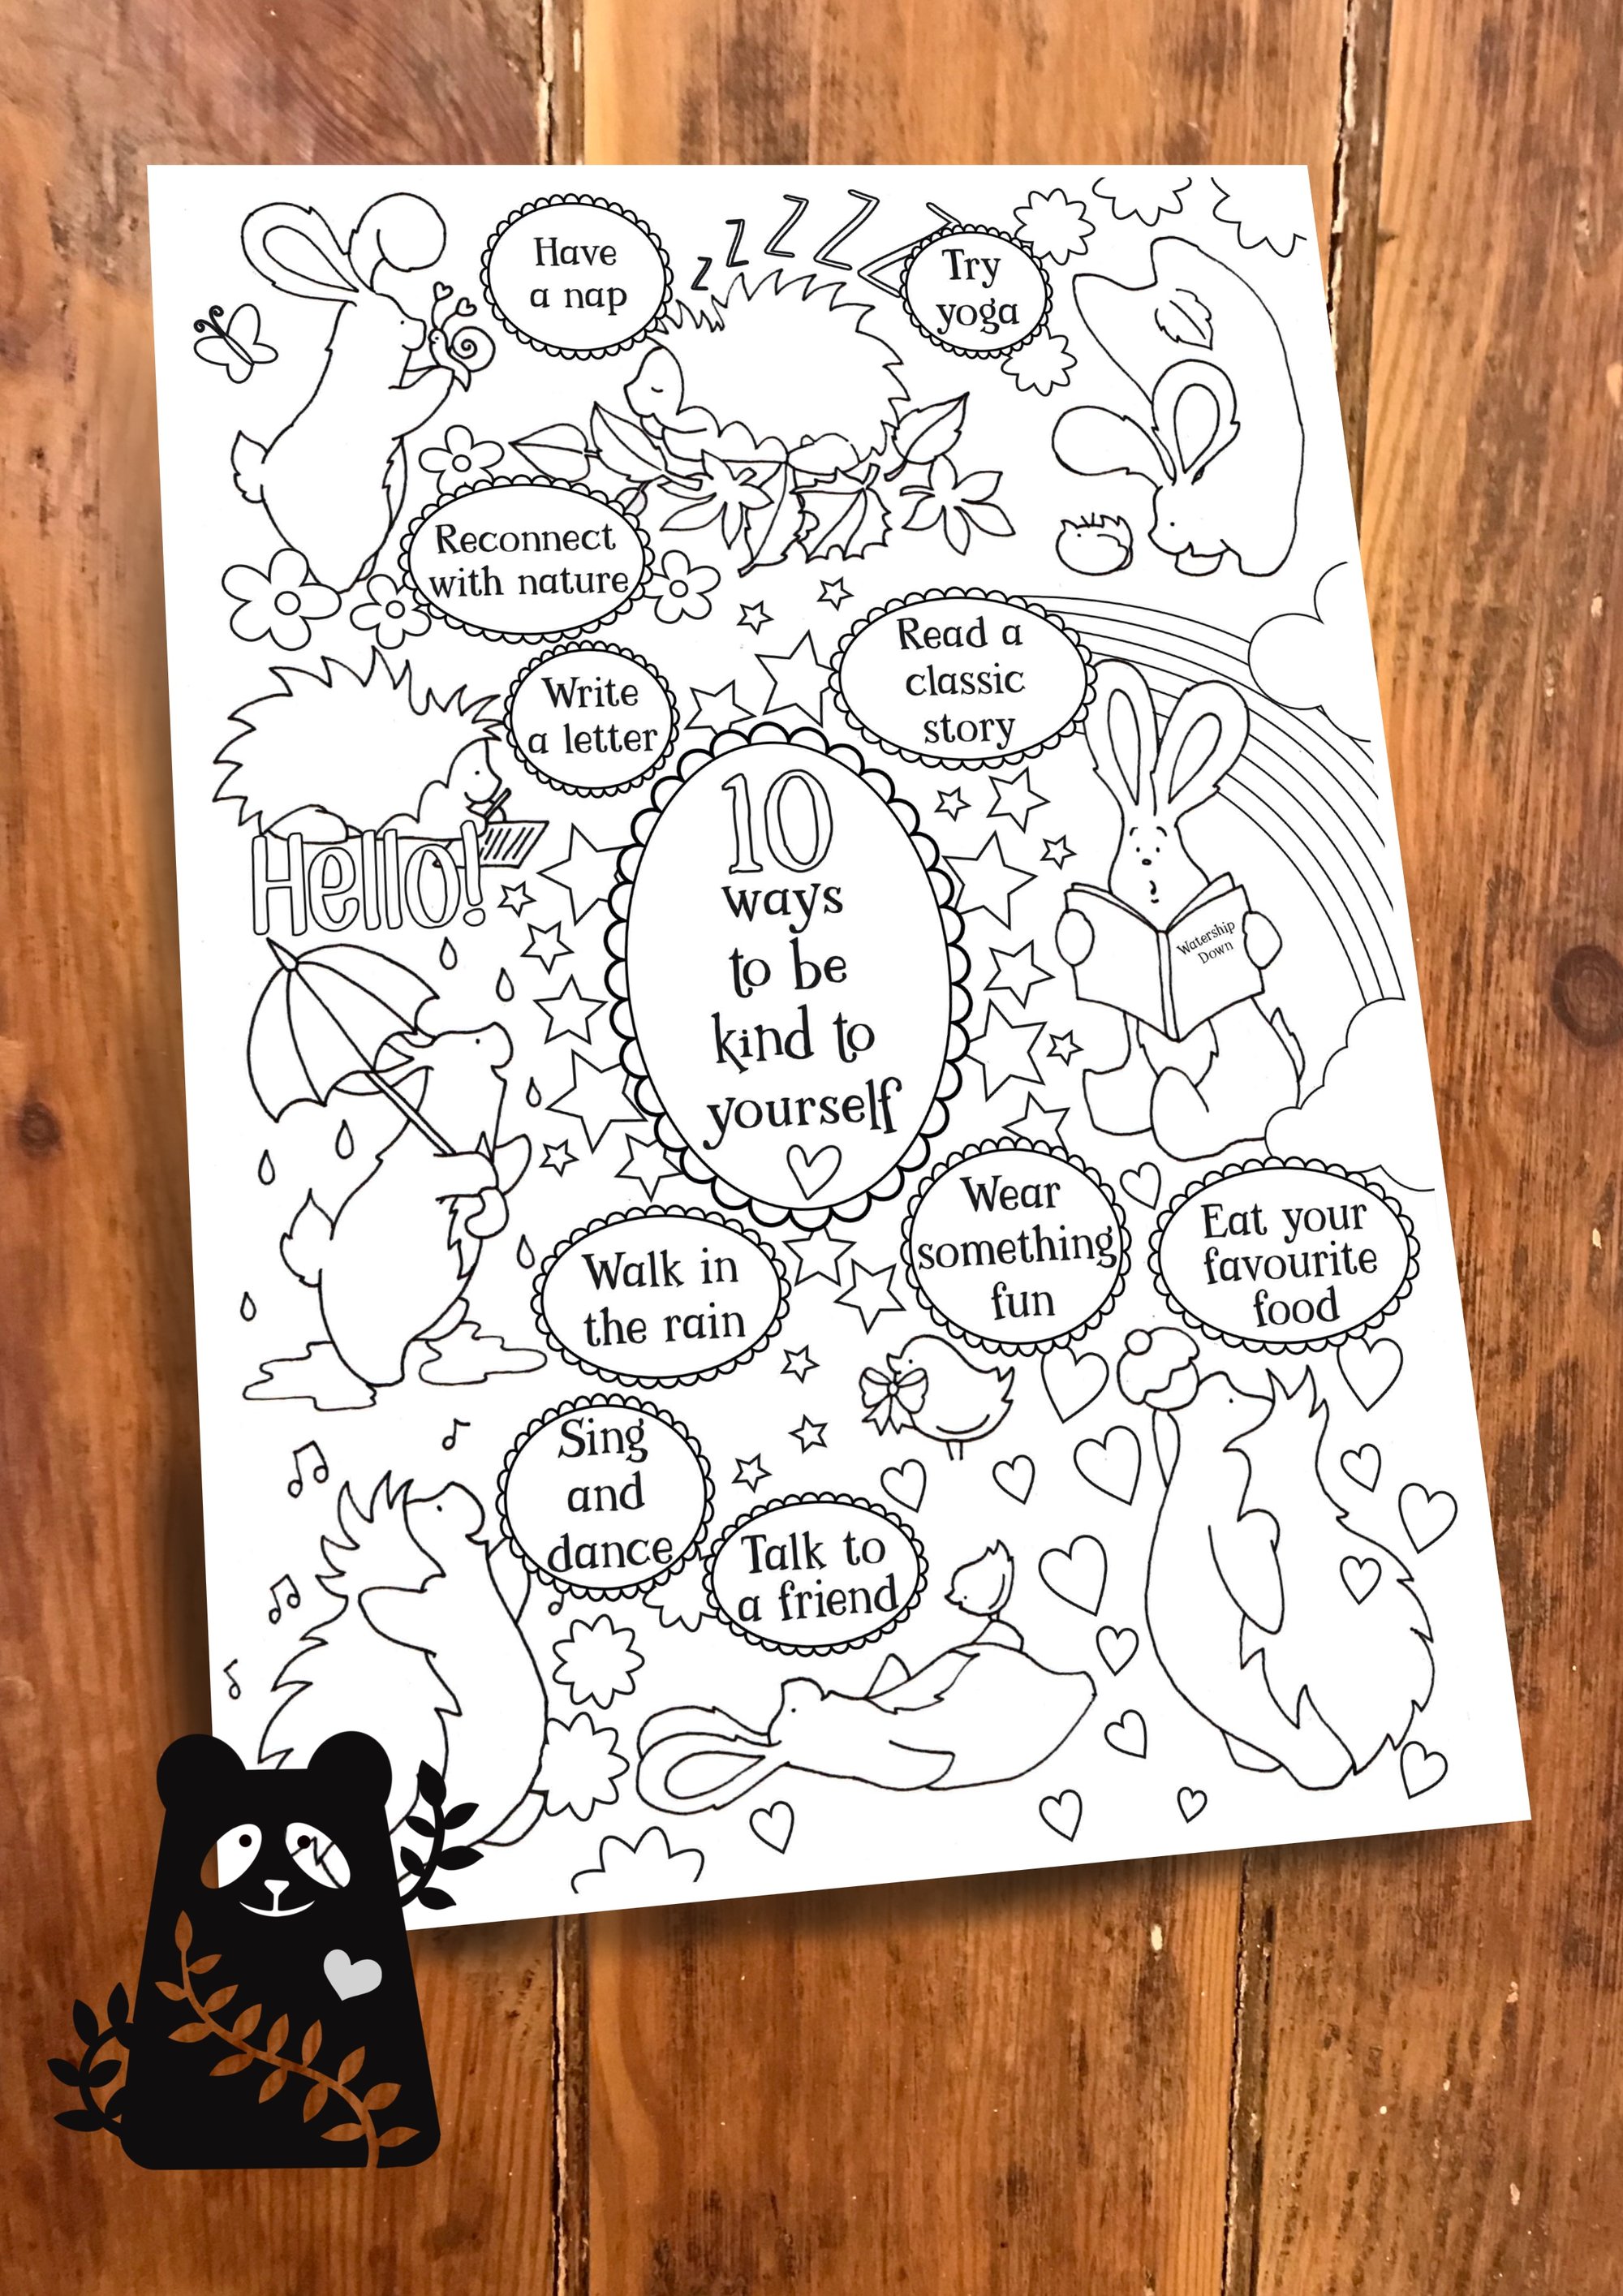 Have
a nap
z z Z Z Z
Try
yoga
Reconnect
with nature
Write
a letter
Read a
classic
story
Hello!
10
ways
to be
kind to
yourself
Watership
Down
Walk in
the rain
Wear
something
fun
Eat your
favourite
food
Sing
and
dance
Talk to
a friend